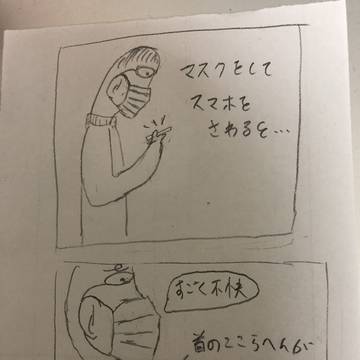 マスクをして
スマホを
さわると…
すごく不快
首のところへんが